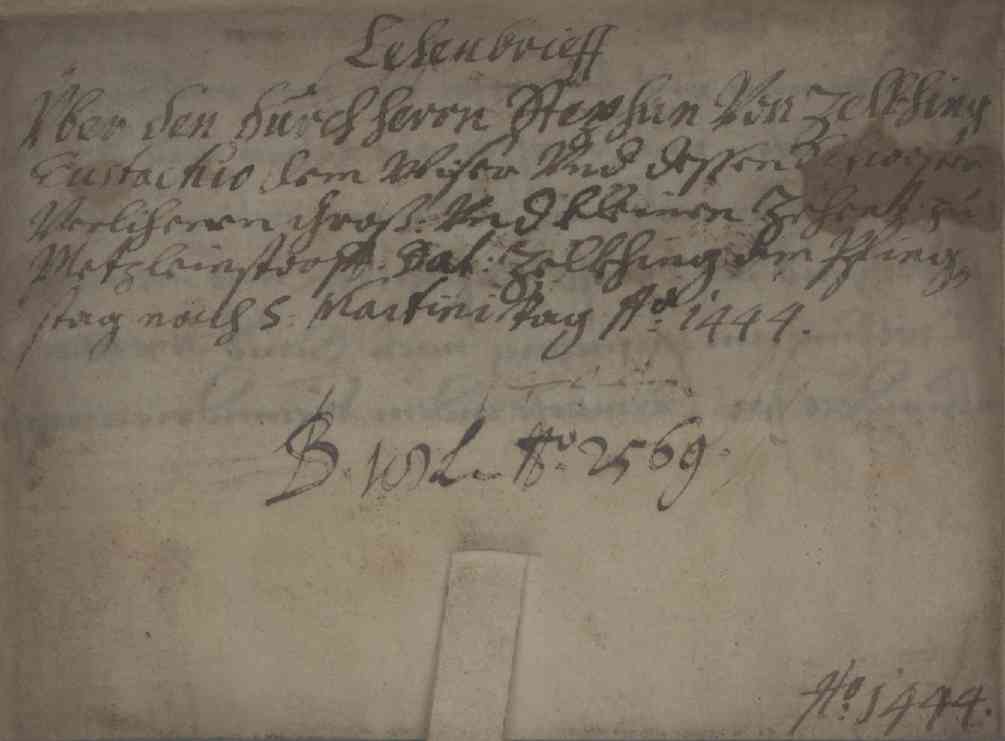 Lehenbrieff
Über den durch herrn Stephan Von Zelkhing
Eustachio dem Wiser Und dessen
Verlihenen groß: Und kleinen Zehent zu
Metzleinstorff. Dat: Zelkhing am Pfing,
stag nach S. Martini tag Aō. 1444.
B. L. No. 2569.
Aō. 1444.